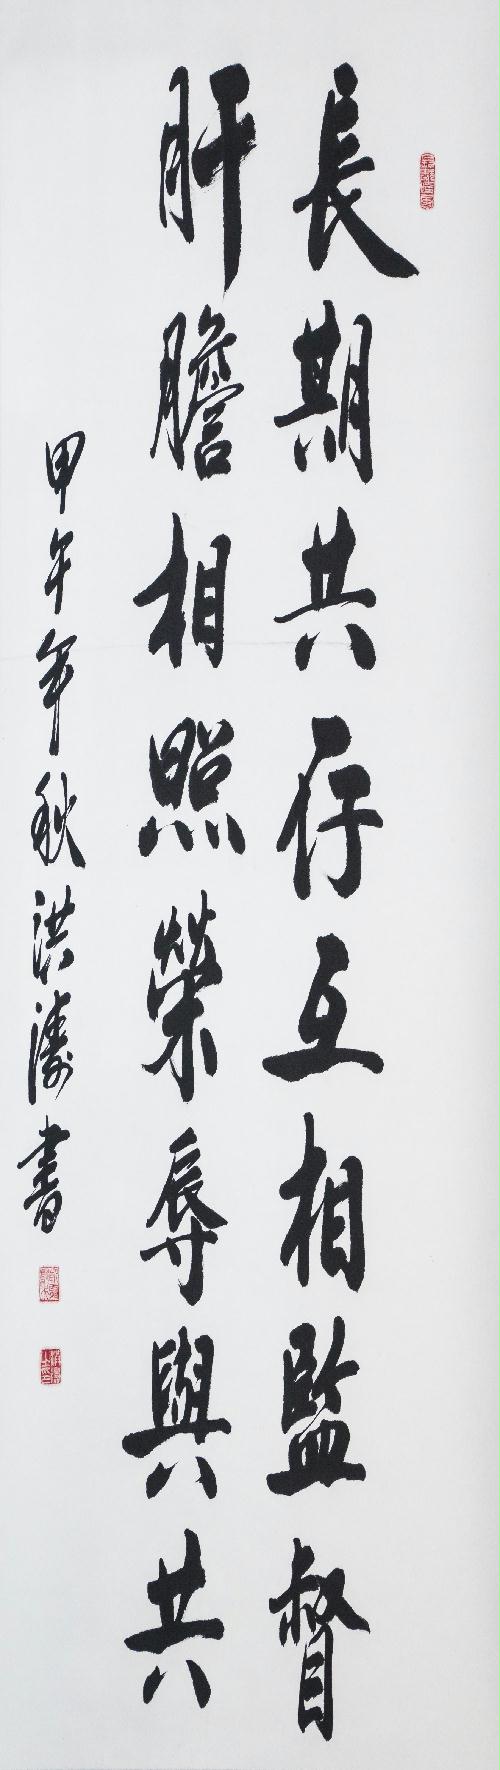 長期共存互相監督
肝膽相照榮辱與共
甲午年秋洪濤書